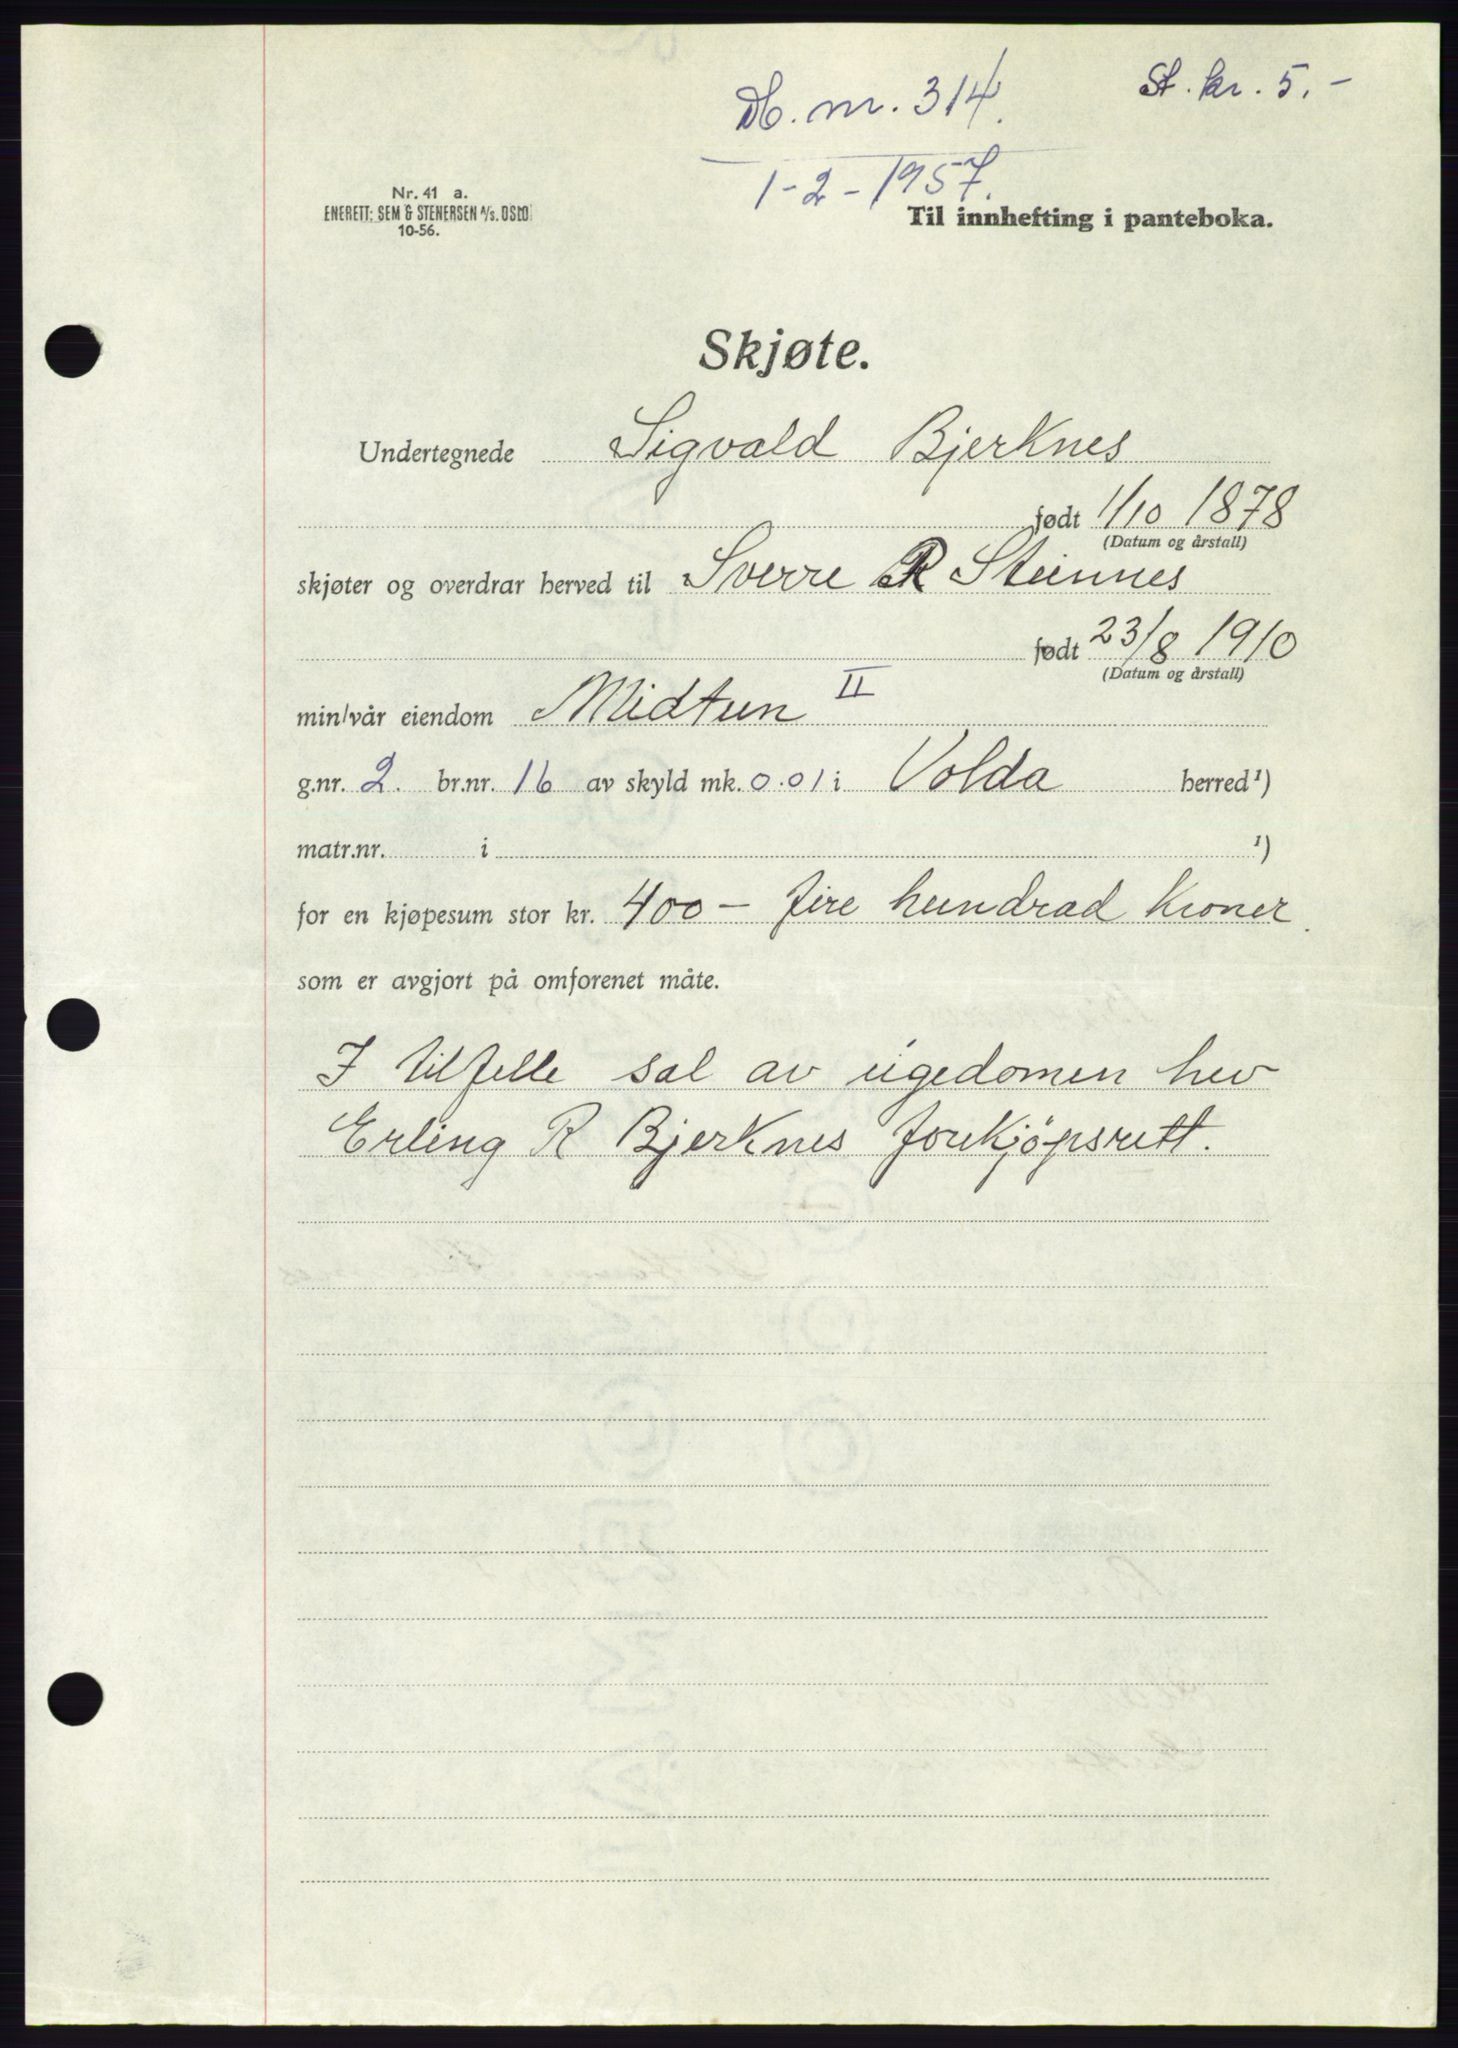 Db. nr. 314. St. kr. 5.-
1-2-1957.
Nr. 41 a.
ENERETT: SEM & STENERSEN A/S. OSLO
10-56.
Til innhefting i panteboka.
Skjøte.
Undertegnede Sigvald Bjerknes
født 1/10 1878
(Datum og årstall)
skjøter og overdrar herved til Sverre R Steinnes
født 23/8 1910
(Datum og årstall)
min/vår eiendom Midtun II
g.nr. 2. br.nr. 16 av skyld mk. 0.01 i Volda herred ¹)
matr.nr. i ¹)
for en kjøpesum stor kr. 400 — fire hundrad Kroner.
som er avgjort på omforenet måte.
I tilfelle sal av eigedomen hev
Erling R Bjerknes forekjöpsrett.